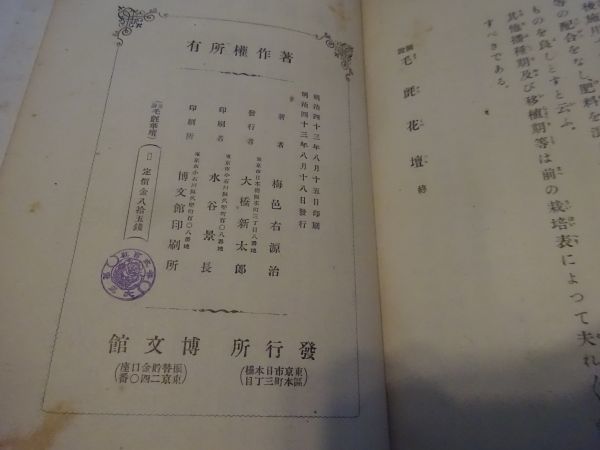 種施用
等の配合をなし肥料を
ものを良しとすと云ふ。
其他播種期及び移植期等は前の栽培表によつて夫れ
すべきである。
毛氈花壇 終
有所權作著
明治四十三年八月十五日印刷
明治四十三年八月十八日發行
著者 梅邑右源治
東京市日本橋區本町三丁目八番地
發行者 大橋新太郎
東京市小石川區久堅町百〇八番地
印刷者 水谷景長
東京市小石川區久堅町百〇八番地
印刷所 博文館印刷所
毛氈華壇
定價金八拾五錢
發行所 博文館
東京市日本橋
區本町三丁目
振替貯金口座
東京二四〇番